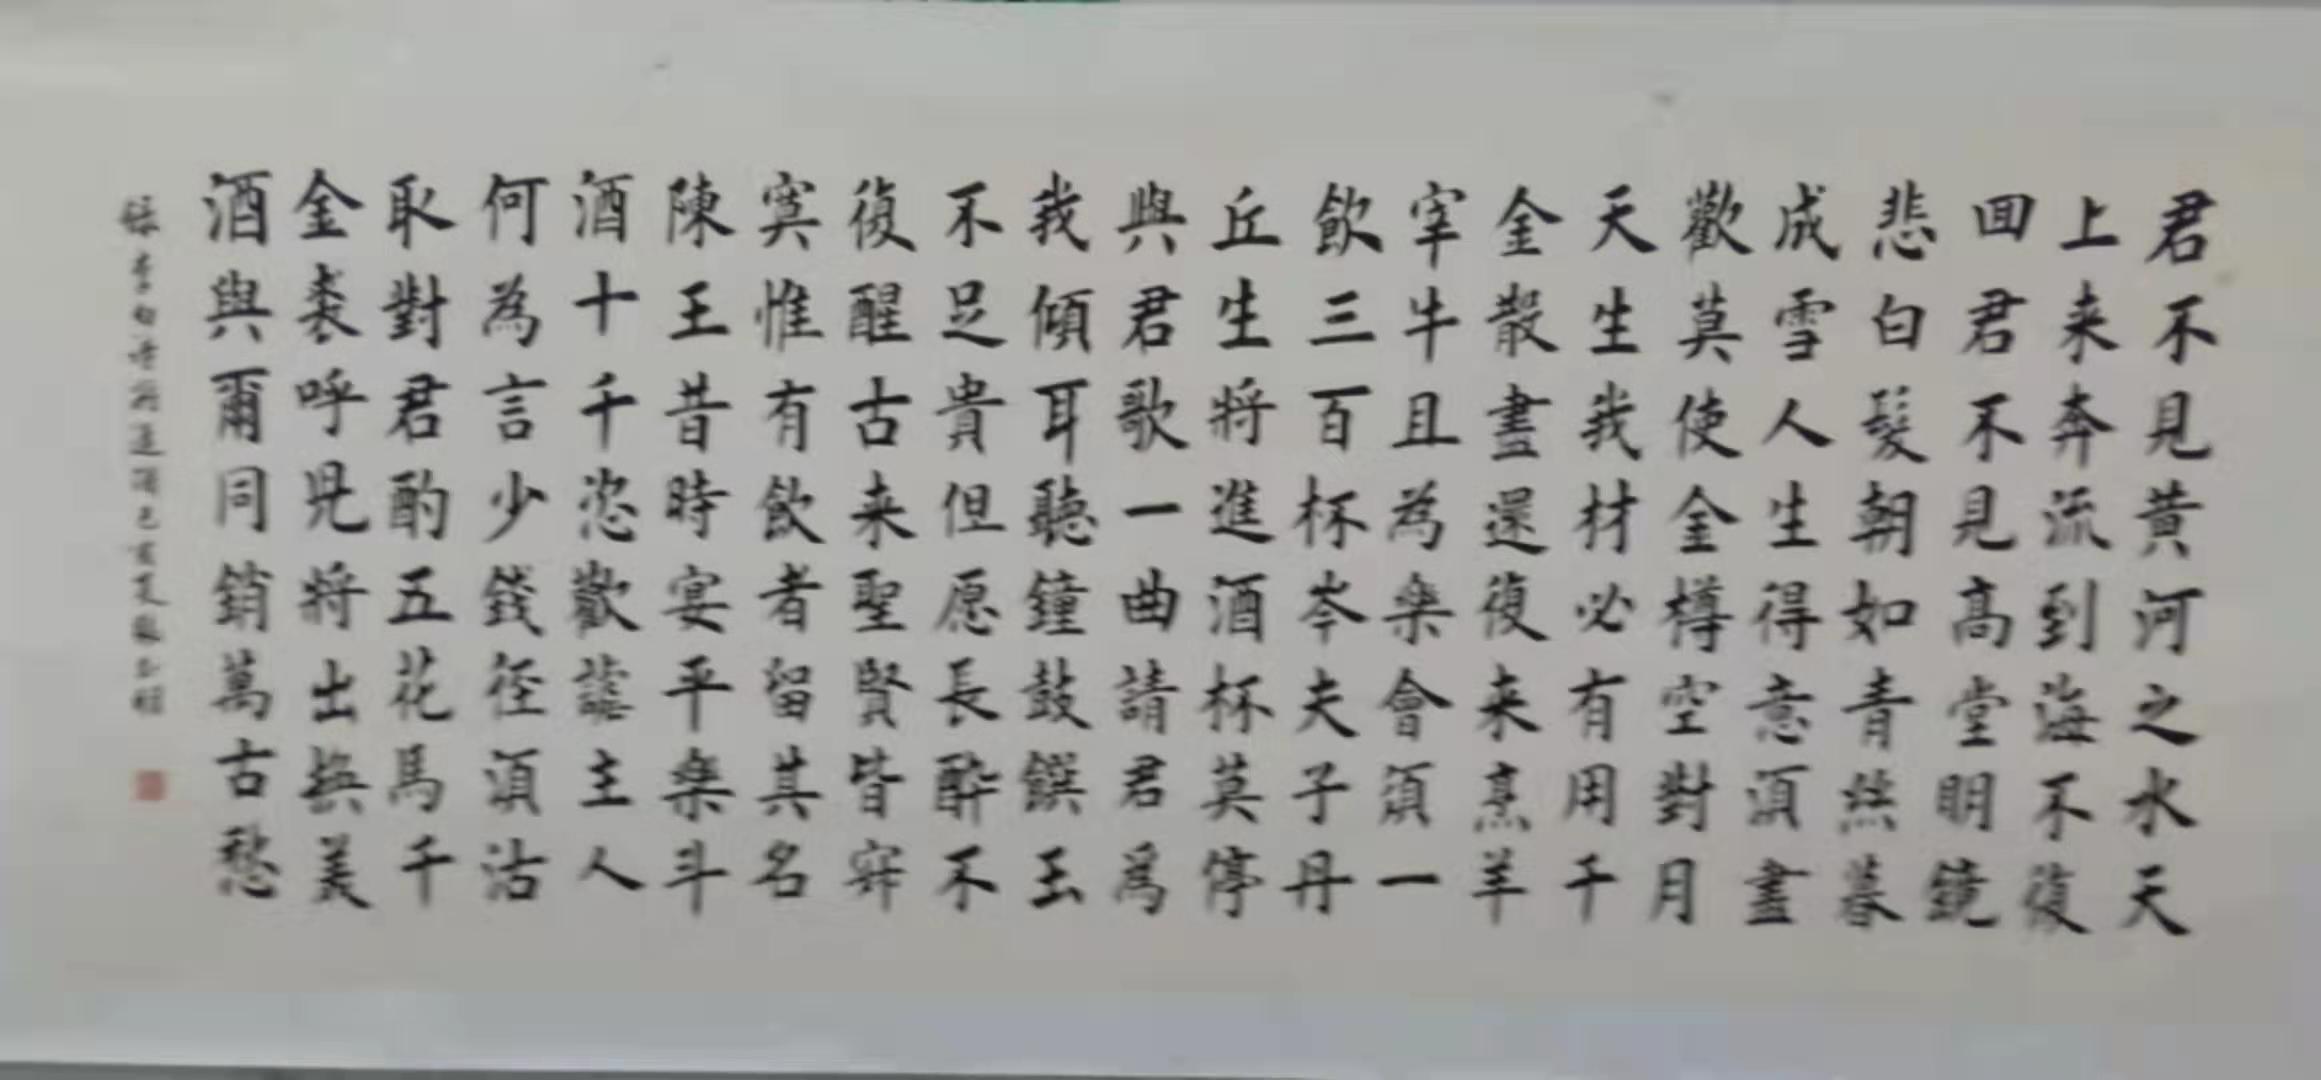 君不見黃河之水天
上来奔流到海不復
回君不見高堂明鏡
悲白髮朝如青絲暮
成雪人生得意須盡
歡莫使金樽空對月
天生我材必有用千
金散盡還復来烹羊
宰牛且為樂會須一
飲三百杯岑夫子丹
丘生將進酒杯莫停
與君歌一曲請君為
我傾耳聽鐘鼓饌玉
不足貴但愿長醉不
復醒古来聖賢皆寂
寞惟有飲者留其名
陳王昔時宴平樂斗
酒十千恣歡謔主人
何為言少錢徑須沽
取對君酌五花馬千
金裘呼兒將出換美
酒與爾同銷萬古愁
錄李白詩將進酒己亥夏張